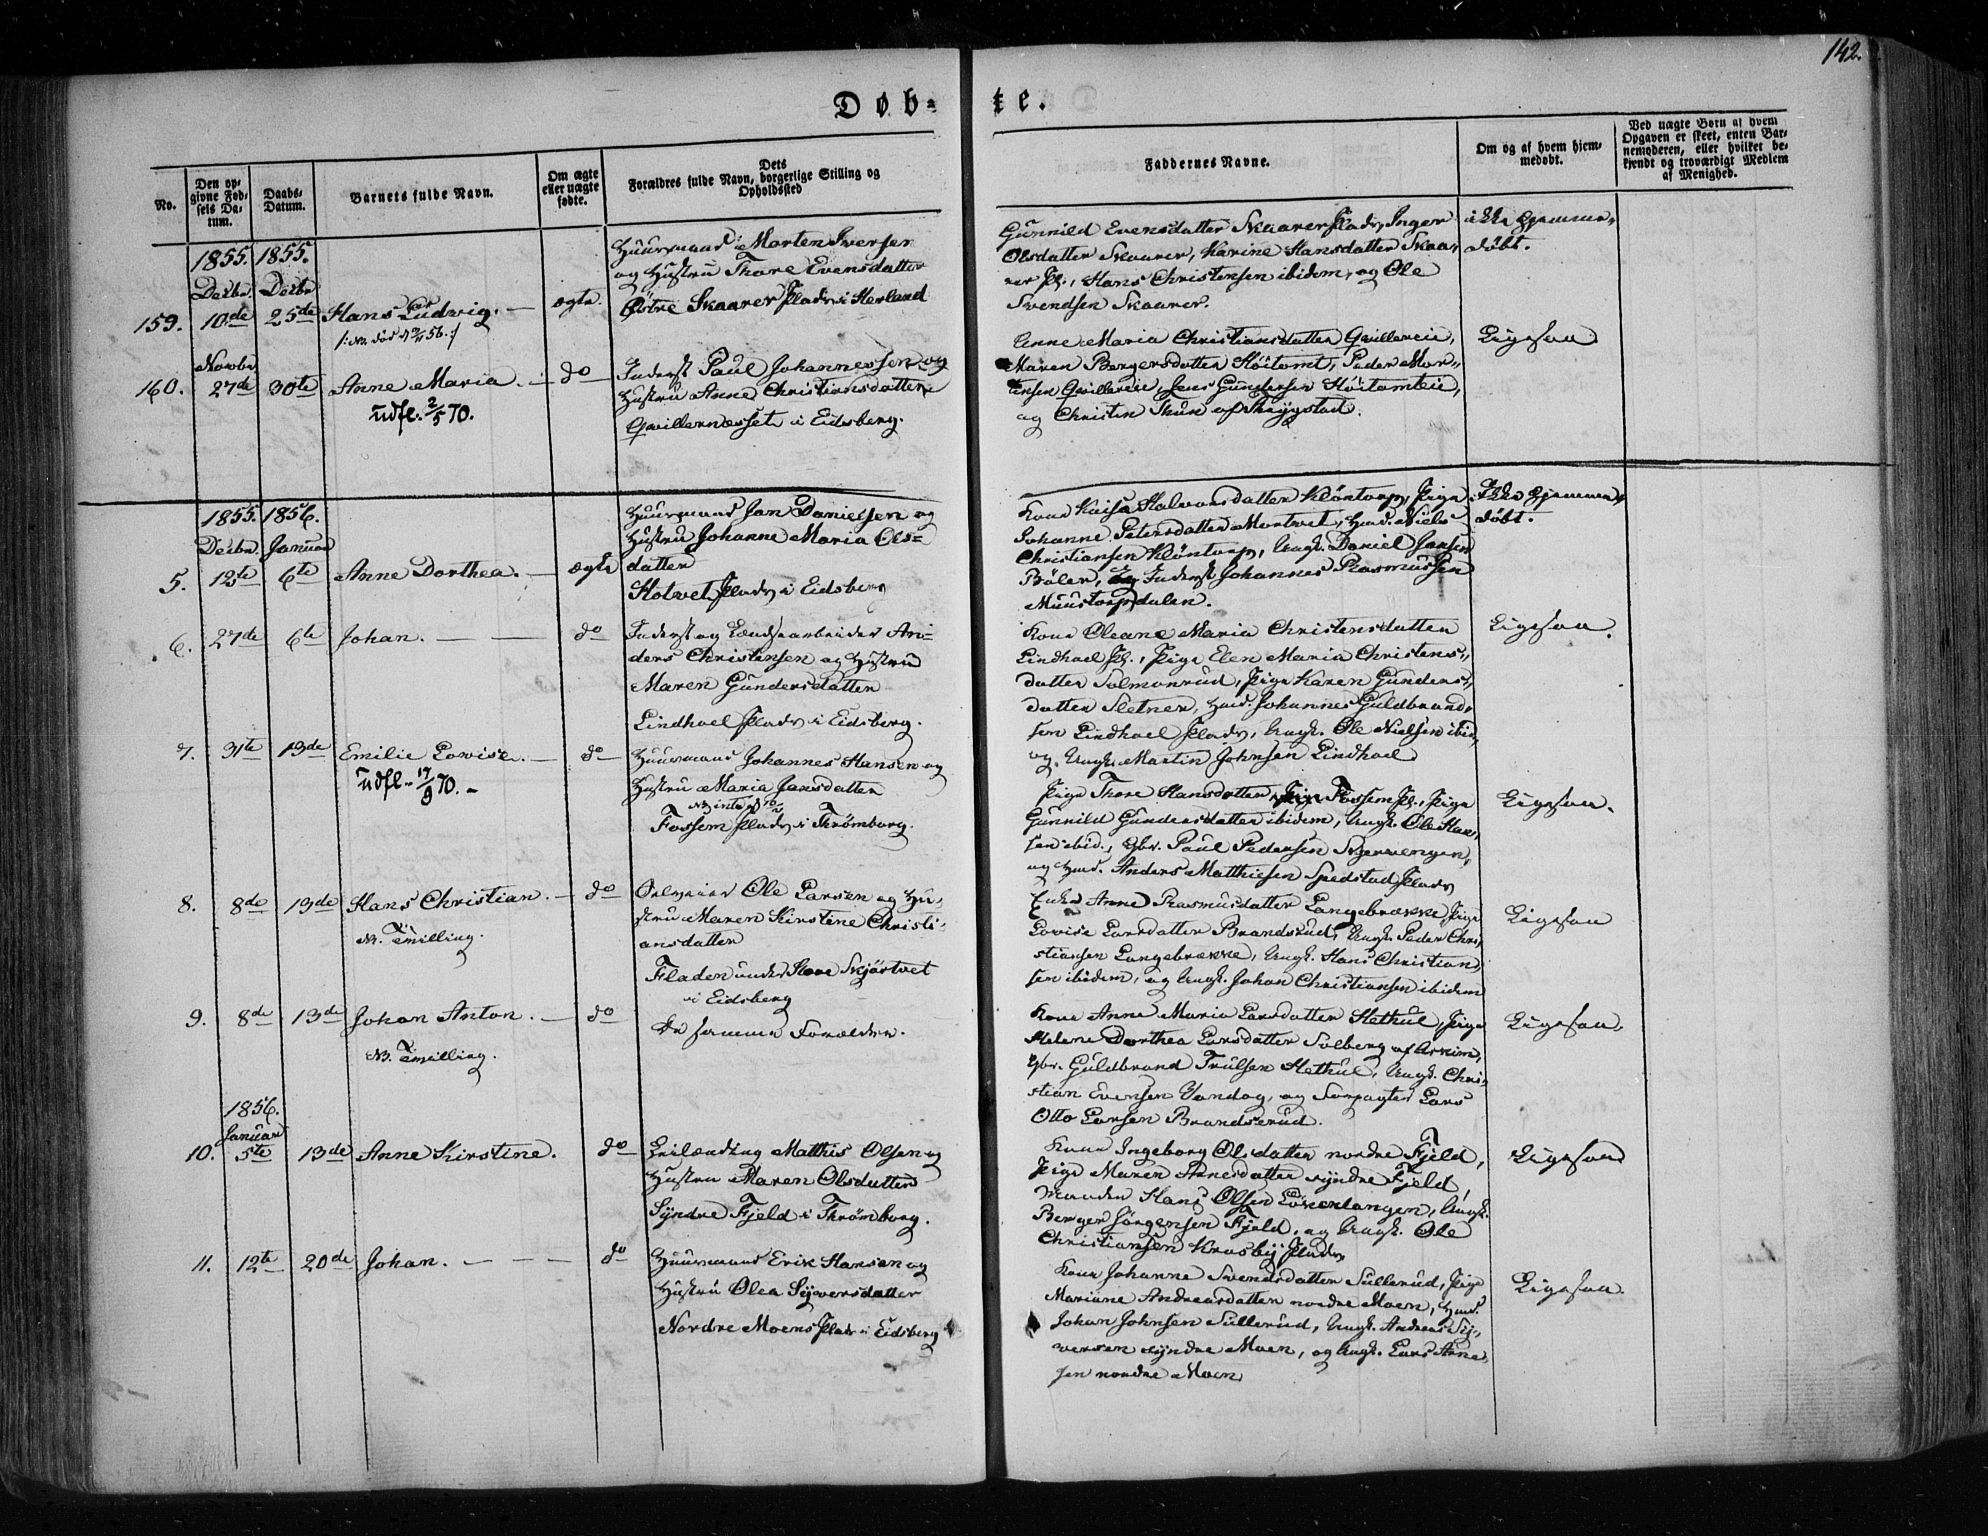 142.
Døb-
te.
No.
Den op-
givne Fød-
sels Da-
tum.
Daabs-
Datum.
Barnets fulde Navn.
Om ægte
eller uægte
fødte.
Dets
Forældres fulde Navn, borgerlige Stilling og
Opholdssted
Faddernes Navne.
Om og af hvem hjem-
medøbt.
Ved uægte Børn af hvem
Opgaven er skeet, enten Bar-
nemoderen, eller hvilket be-
kjendt og troværdigt Medlem
af Menighed.
1855. 1855.
Decbr. Decbr.
159. 10de 25de Hans Ludvig. ægte.
Huusmand Morten Iversen
og Hustru Thore Evensdatter
Østre Skaarer Plads i Herland
Gunnild Evensdatter Skaarer Plads, Inger
Olsdatter Skaarer, Karine Hansdatter Skaa-
rer Pl., Hans Christensen ibidem, og Ole
Svendsen Skaarer.
ikke hjemme-
døbt.
Novbr.
160. 27de 30te Anne Maria. do
udfl. 2/5 70.
Inderst Paul Johannessen og
Hustru Anne Christiansdatter
i Eidsberg.
Anne Maria Christiansdatter
Maren Bergersdatter Høitomt, Peder Mor-
tensen Jens Gundersen
og Christen Thun af
Ligesaa
1855. 1856.
Decbr. Januar
5. 12te 6te Anne Dorthea. ægte
Huusmand Jan Danielsen og
Hustru Johanne Maria Ols-
datter
Hotvet Plads i Eidsberg
Kone Kaisa Halvorsdatter Kløntorp, Pige
Johanne Petersdatter Mortvet, Huusmd. Niels
Christiansen Kløntorp, Ungk. Daniel Jansen
Bøler, Inderst Johannes Rasmussen
Muustorpdalen.
Ikke hjemme-
døbt.
6. 27de 6te Johan. do
Inderst og An-
ders Christensen og Hustru
Maren Gundersdatter
Lindhoel Plads i Eidsberg.
Kone Oleane Maria Christensdatter
Lindhoel Pl., Pige Elen Maria Christens-
datter Solmonrud, Pige Karen Gunders-
datter Sletner, Huusmd. Johannes Guldbrand-
sen Lindhoel Plads, Ungk. Ole Nielsen ibid.,
og Ungk. Martin Johnsen Lindhoel
Ligesaa.
7. 31te 13de Emilie Lovise. do
udfl. 17/9 70.
Huusmand Johannes Hansen og
Hustru Maria Jansdatter
Fossem Plads i Trømborg.
Pige Thore Hansdatter Fossem Pl., Pige
Gunnild Gundersdatter ibidem, Ungk. Ole Han-
sen ibid., Gbr. Paul Pedersen
og Huusmd. Anders Matthisen Spedstad Plads
Ligesaa.
8. 8de 13de Hans Christian. do
NB. Tvilling.
Ole Larsen og Hu-
stru Maren Kirstine Christi-
ansdatter
Fladen under Store Skjørtvet
i Eidsberg
Enke Anne Rasmusdatter Langebrække, Pige
Lovise Larsdatter Brandsrud, Ungk. Peder Chri-
stiansen Langebrække, Ungk. Hans Christian-
sen ibidem, og Ungk. Johan Christiansen ibidem
Ligesaa
9. 8de 13de Johan Anton. do
NB. Tvilling.
De samme Forældre.
Kone Anne Maria Larsdatter Hethul, Pige
Helene Dorthea Larsdatter Solberg af Askim,
Gbr. Guldbrand Trulsen Hethul, Ungk. Chri-
stian Evensen Vandog, og Forpagter Lars
Otto Larsen Brandsrud.
Ligesaa.
1856.
Januar
10. 5te 13de Anne Kirstine. do
Leilænding Matthis Olsen og
Hustru Maren Olsdatter
Syndre Fjeld i Trømborg.
Kone Ingeborg Olsdatter nordre Fjeld,
Pige Maren Arnesdatter syndre Fjeld,
Hans Olsen Ungk.
Berger Jørgensen Fjeld, og Ungk. Ole
Christiansen Krosby Plads
Ligesaa
11. 12te 20de Johan. do
Huusmand Erik Hansen og
Hustru Olea Syversdatter
Nordre Moens Plads i Eidsberg
Kone Johanne Svendsdatter Sullerud, Pige
Mariane Andreasdatter nordre Moen, Huusmd.
Johan Johnsen Sullerud, Ungk. Andreas Sy-
versen syndre Moen, og Ungk. Lars Arne-
sen nordre Moen
Ligesaa.